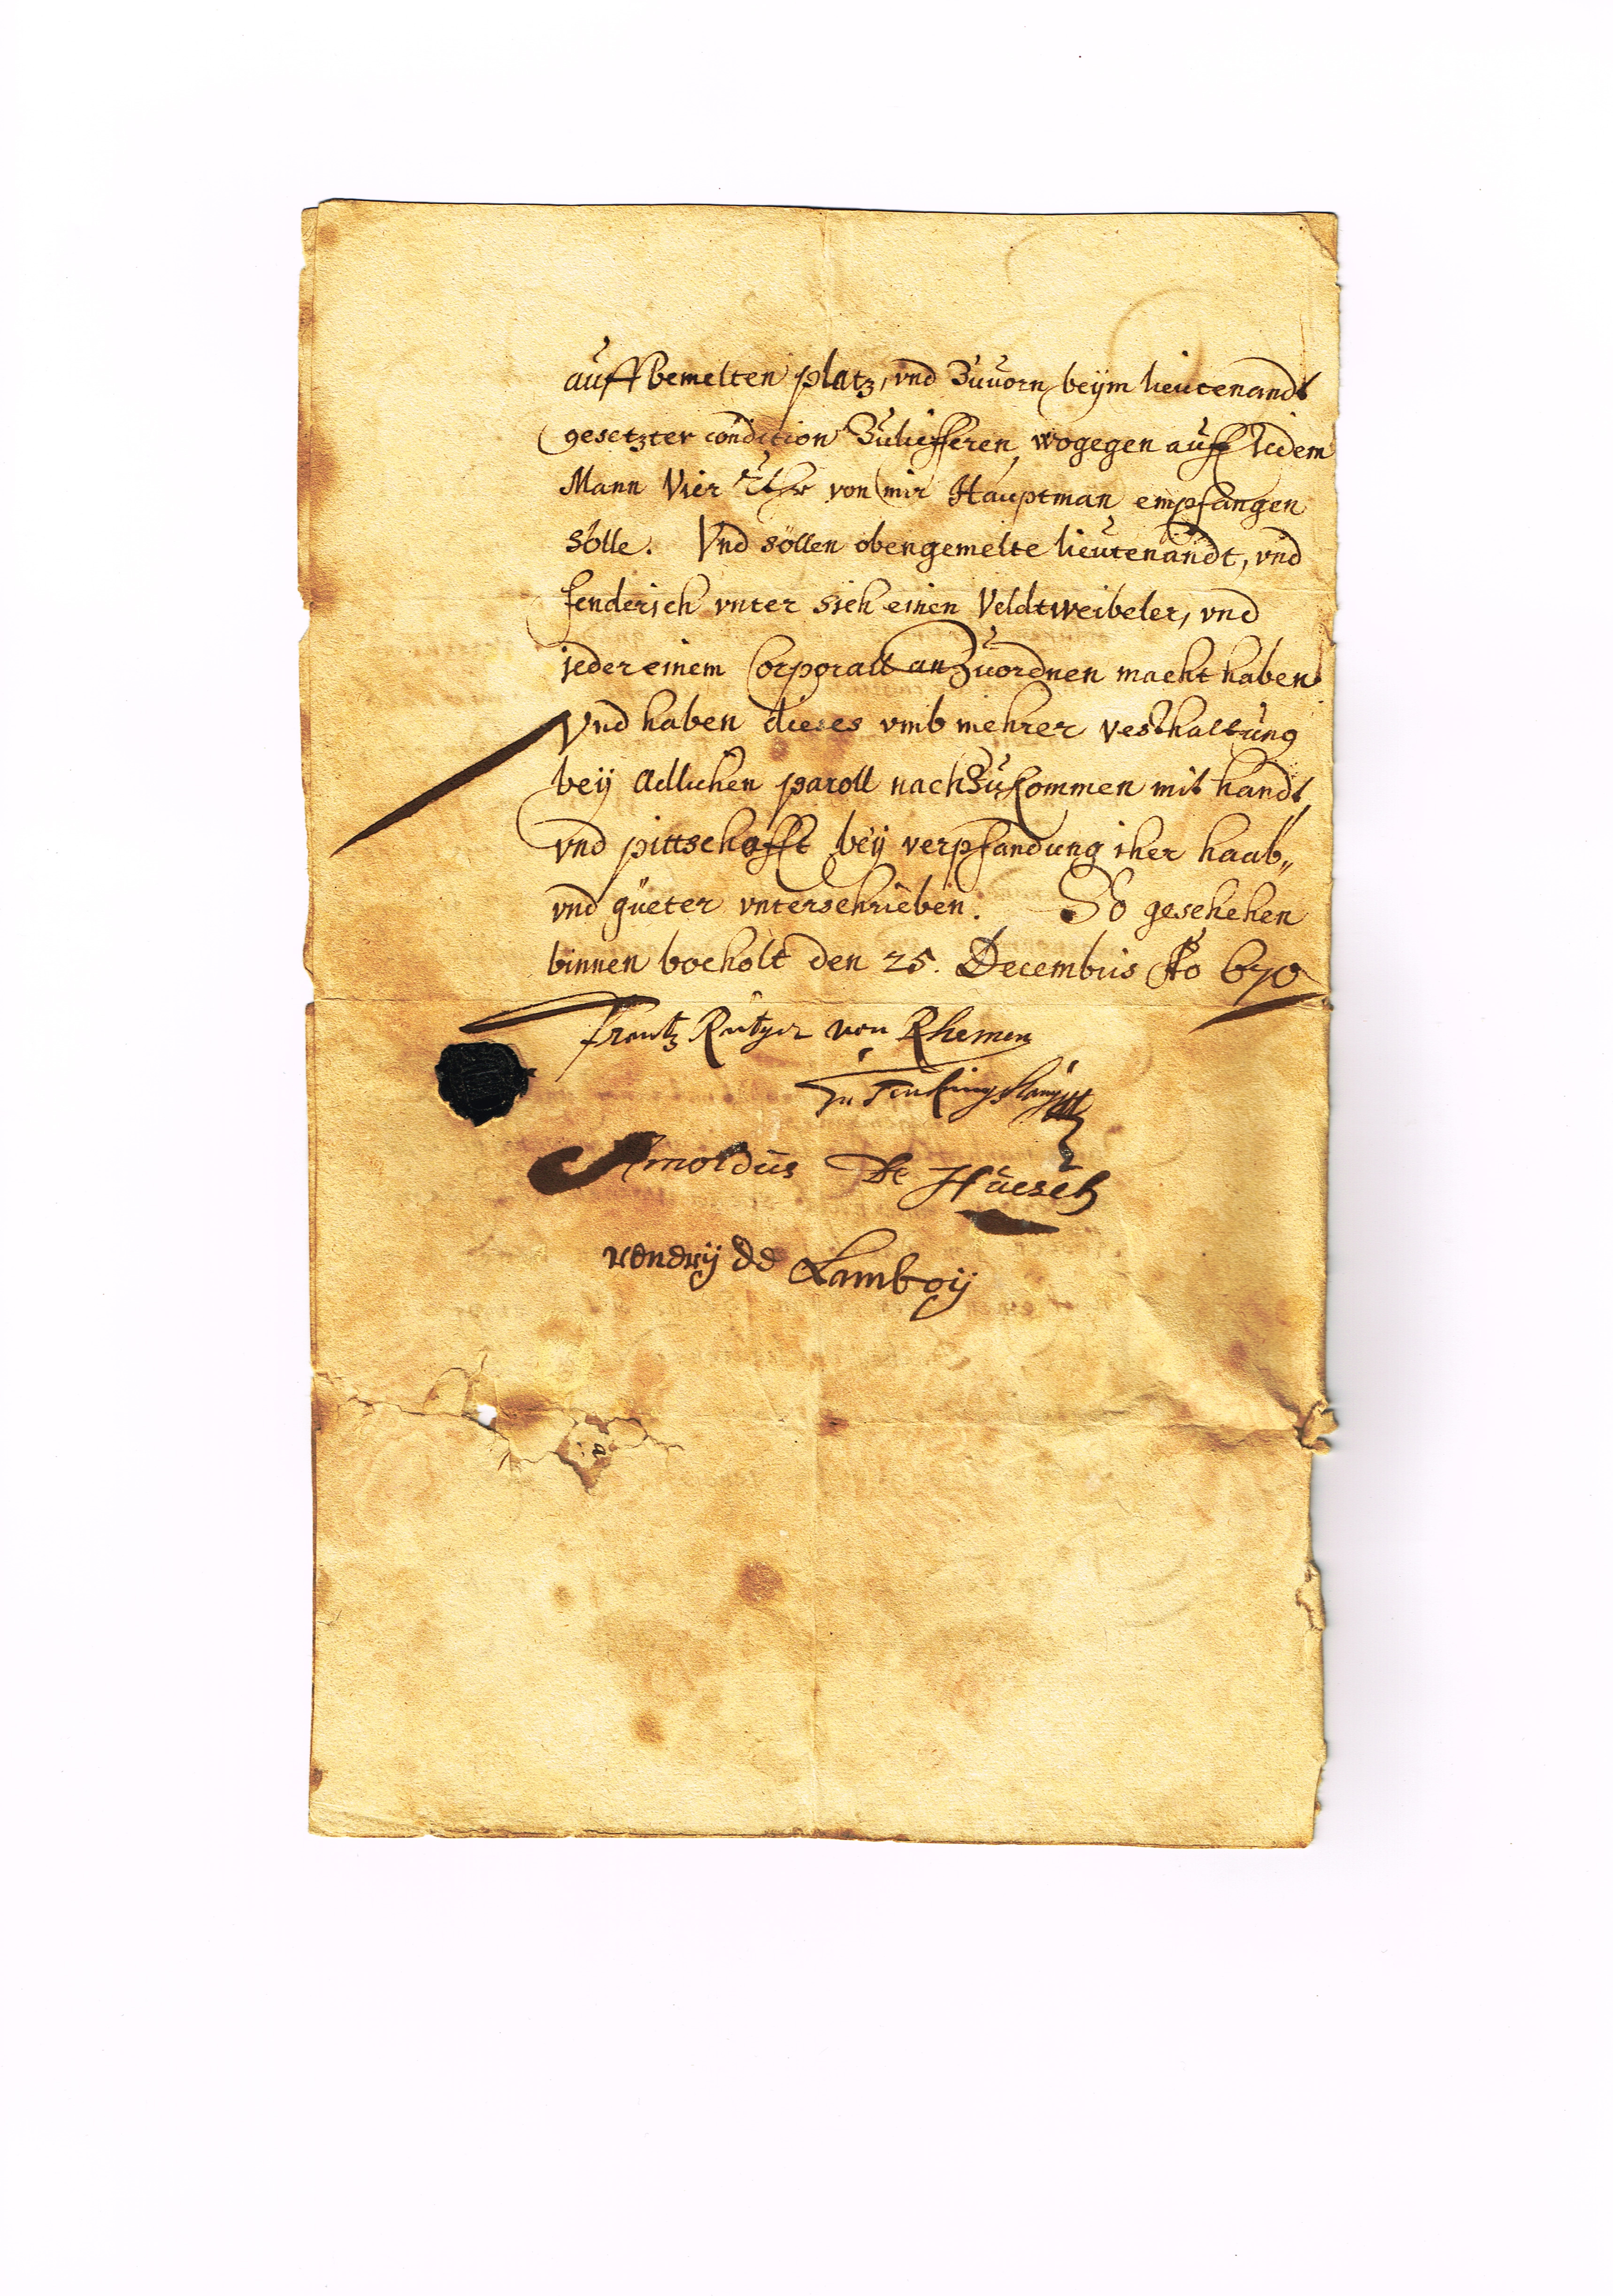 auff bemelten platz, vnd Zuuorn beÿm lieutenandt
gesetzter condition Zulieffereren, wogegen auff Jedem
Mann Vier Rthr von mir Hauptman empfangen
solle. Vnd sollen obengemelte lieutenandt, vnd
fenderich vnter sich einen Veldtweibeler, vnd
jeder einem Corporall anZuordnen macht haben
Vnd haben dieses vmb mehrer vesthaltung
beÿ adlichen paroll nachZukommen mit handt
vnd pittschafft beÿ verpfandung iher haab„
vnd güeter vnterschrieben. So geschehen
binnen bocholt den 25. Decembris Ao 670
frantz Rutger von Rhemen
Zu
Arnoldus De Huesch
de Lamboÿ